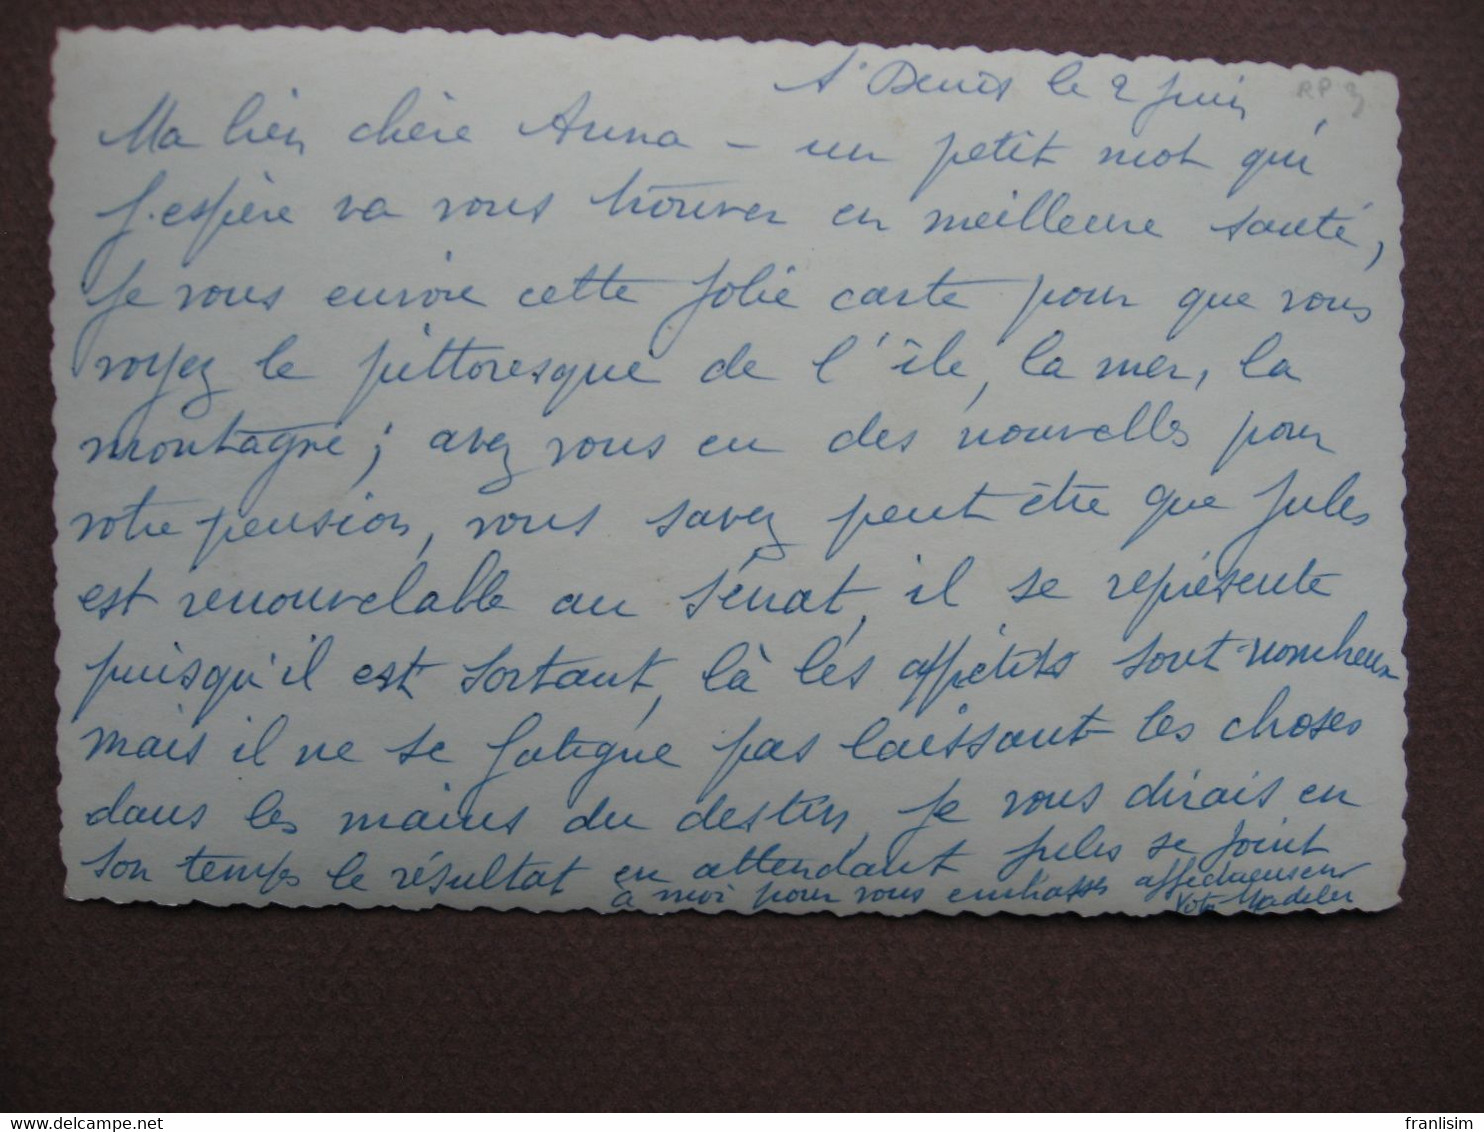 St Denis le 2 Juin
RP 3
Ma bien chère Anna – un petit mot qui
j'espère va vous trouver en meilleure santé,
je vous envoie cette jolie carte pour que vous
voyez le pittoresque de l'île, la mer, la
montagne ; avez vous eu des nouvelles pour
votre pension, vous savez peut être que Jules
est renouvelable au Sénat, il se représente
puisqu'il est sortant, là les appétits sont nombreux
mais il ne se fatigue pas laissant les choses
dans les mains du destin, je vous dirais en
son temps le résultat en attendant Jules se joint
à moi pour vous embrasser affectueusement
Votre Madeleine
delcampe.net
franlisim